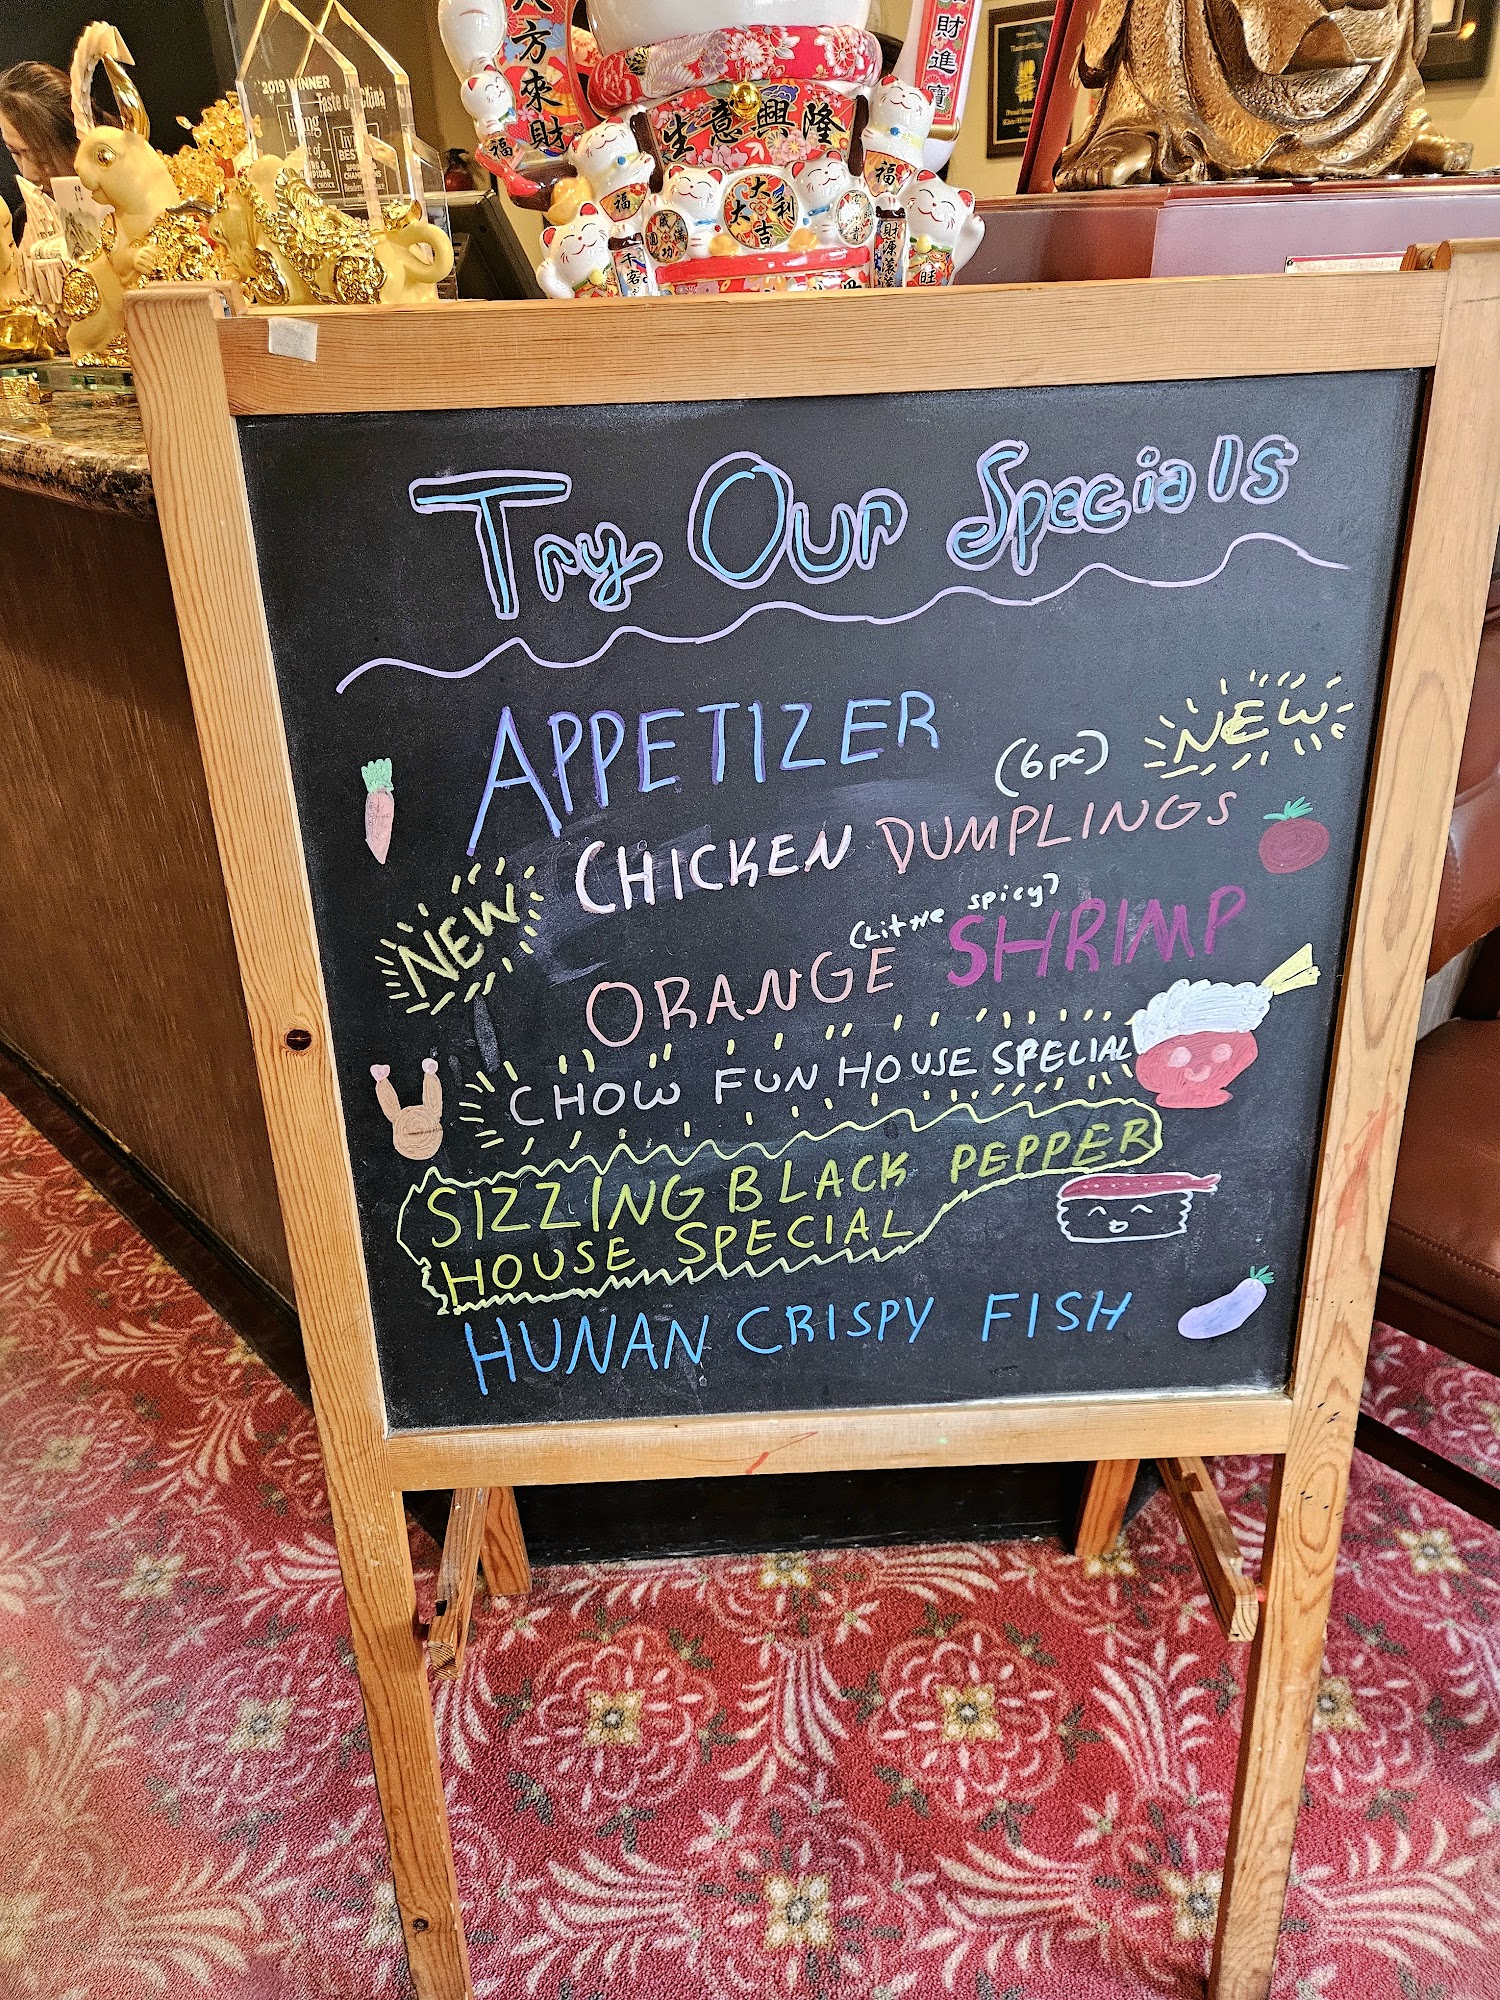 2019 WINNER
Taste of China
living
BEST
八方來財
財進寶
生意興隆
福
福
福
大大吉利
成功圓滿
財源滾滾
千客
旺
Try Our Specials
APPETIZER
NEW
(6pc)
CHICKEN DUMPLINGS
NEW
(Little spicy)
ORANGE SHRIMP
CHOW FUN HOUSE SPECIAL
SIZZING BLACK PEPPER
HOUSE SPECIAL
HUNAN CRISPY FISH